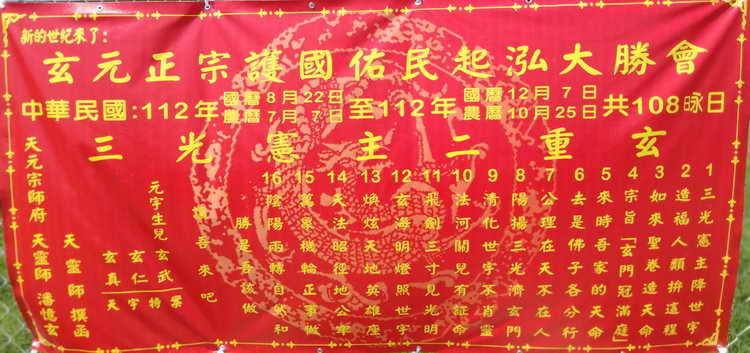 新的世紀來了：
玄元正宗護國佑民起泓大勝會
中華民國：112年 國曆8月22日 農曆7月7日 至112年 國曆12月7日 農曆10月25日 共108昹日
三光憲主二重玄
1 三光憲主降世宇
2 造福人類拚這程
3 如來聖卷造天命
4 宗旨「玄門冠滿庭」
5 來時吾家的天命
6 去是佛子各分行
7 公理在天不在人
8 陽揚三光濟玄門
9 清化世宇不肖靈
10 法河關兒有証命
11 飛劍三寸見光明
12 玄海明燈照世宇
13 煥炫天地英雄座
14 天法昭徑地公牢
15 萬眾機輪正事做
16 陰陽兩轉自然和
勝是吾該做
讚喜來吧
元宇生兒
玄武
玄仁
玄真
天宇特眾
天靈師 撰函
天元宗師府 天靈師 潘憶玄